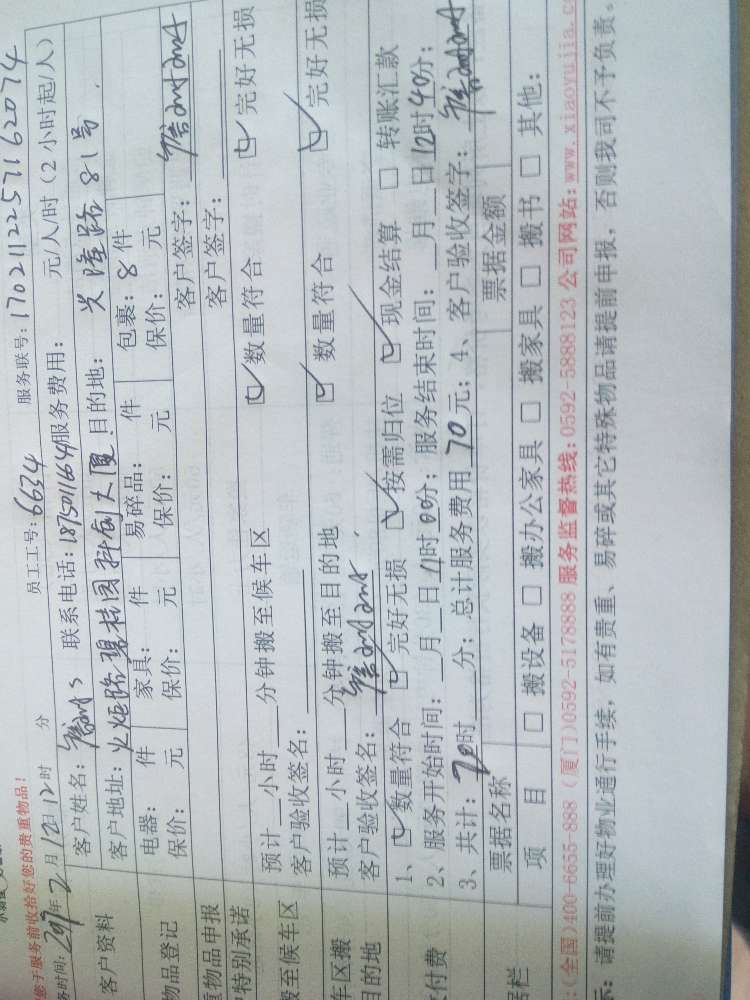 您于服务前收拾好您的贵重物品!
务时间: 年2月12日12时 分 员工工号: 6634 服务联号: 170211225716 2074
客户资料 客户姓名: 联系电话: 18750116649 服务费用: 元/人/时 (2小时起/人)
客户地址: 火炬路碧桂园科创大厦 目的地: 兴隆路81号.
物品登记 电器: 件 家具: 件 易碎品: 件 包裹: 8件
保价: 元 保价: 元 保价: 元 保价: 元
重物品申报 客户签字:
特别承诺 客户签字:
搬至候车区 预计__小时__分钟搬至候车区 ☑数量符合 ☑完好无损
客户验收签名:
车区搬 预计__小时__分钟搬至目的地 ☑数量符合 ☑完好无损
目的地 客户验收签名:
付费 1、☑数量符合 ☑完好无损 ☑按需归位 ☑现金结算 □转账汇款
2、服务开始时间: __月__日11时00分; 服务结束时间: __月__日12时40分;
3、共计: 时__分; 总计服务费用70元; 4、客户验收签字:
据栏 票据名称 票据金额
项目 □搬设备 □搬办公家具 □搬家具 □搬书 □其他:
:(全国)400-6655-888 (厦门)0592-5178888 服务监督热线: 0592-5888123 公司网站: www.xiaoyujia.c
示: 请提前办理好物业通行手续, 如有贵重、易碎或其它特殊物品请提前申报, 否则我司不予负责。